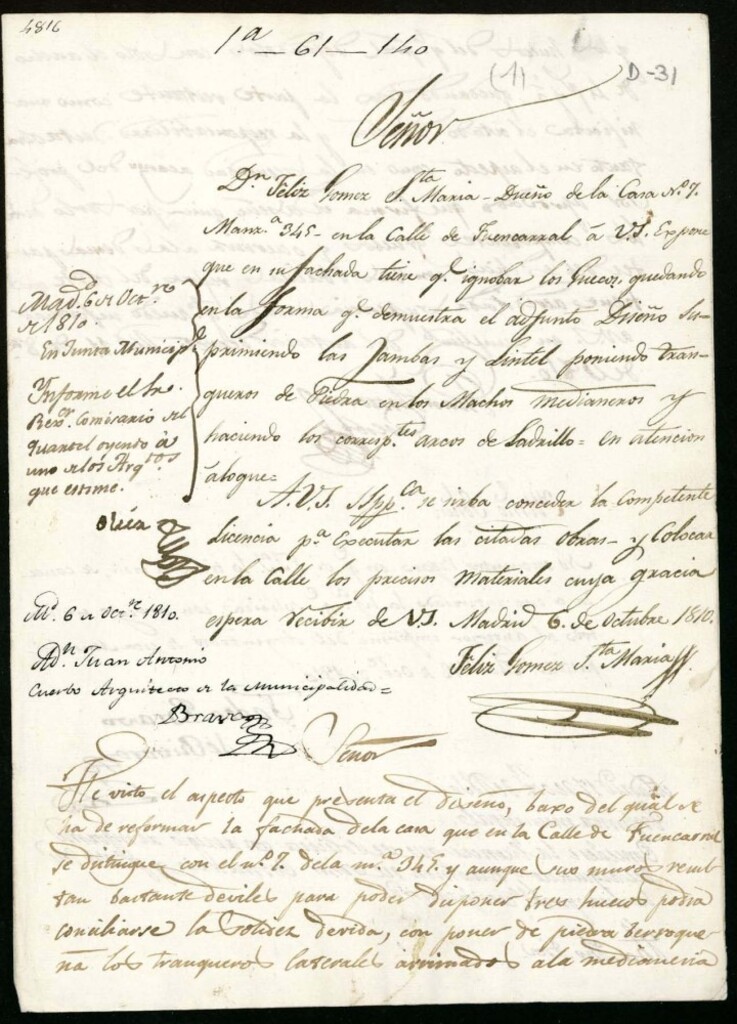 4816
1.ª - 61 - 140
(1)
D-31
Señor
Dn Féliz Gomez Sta Maria - Dueño de la Casa N.º 7.
Manz.ª 345 - en la Calle de Fuencarral à V.I. Expone
que en su fachada tiene q.e los huecos, quedando
en la forma q.e demuestra el adjunto Diseño Su-
primiendo las Jambas y Lintel poniendo tran-
queros de Piedra en los Machos medianeros y
haciendo los corresp.tes arcos de Ladrillo = en atencion
àloque =
A.V.I. Supp.ca se sirba conceder la Competente
Licencia p.a Executar las citadas obras - y Colocar
en la Calle los precisos Materiales cuya gracia
espera recibir de V.I. Madrid 6. de Octubre 1810.
Féliz Gomez Sta Maria
Mad.d 6 de Oct.re
de 1810.
En Junta Municip.l
Informe el Sr.
Comisario del
quartel oyendo à
uno de los Arq.tos
que estime.
M.d 6 de Oct.re 1810.
A Dn Juan Antonio
Cuerbo Arquitecto de la Municipalidad =
Bravo
Señor
He visto el aspecto que presenta el diseño, baxo del qual se
ha de reformar la fachada dela casa que en la Calle de Fuencarral
se distingue con el n.º 7. dela m.ª 345. y aunque sus muros resul-
tan bastante deviles para poder disponer tres huecos podia
conciliarse la solidez devida, con poner de piedra berroque-
ña los tranqueros laterales arrimados ala medianeria